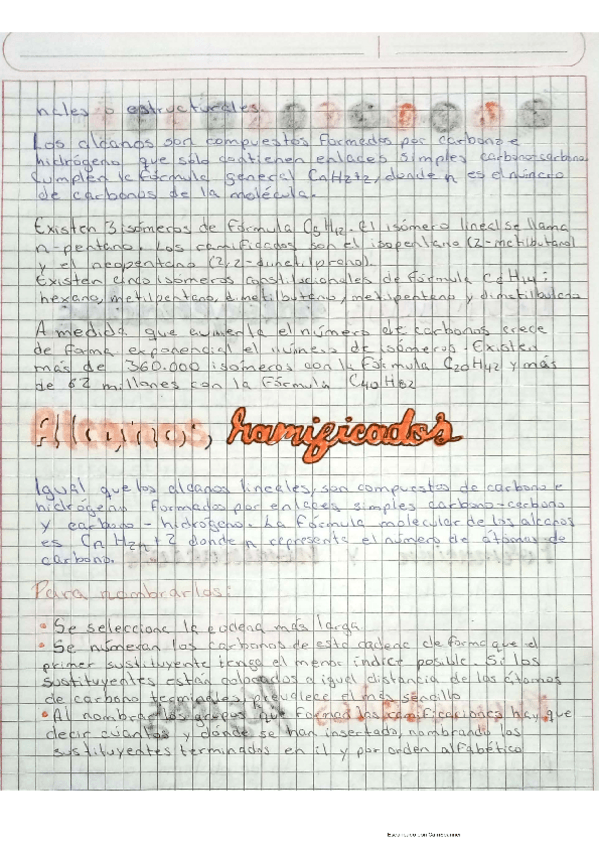 nales o estructurales.
Los alcanos son compuestos formados por carbono e
hidrógeno que sólo contienen enlaces simples carbono-carbono
Cumplen la fórmula general CnH2+2, donde n es el número
de carbonos de la molécula.
Existen 3 isómeros de fórmula C5H12. el isómero lineal se llama
n-pentano. Los ramificados son el isopentano (2-metilbutano)
y el neopentano (2,2-dimetilpropano).
Existen cinco isómeros constitucionales de fórmula C6H14:
hexano, metilpentano, dimetilbutano, metilpentano y dimetilbutano
A medida que aumenta el número de carbonos crece
de forma exponencial el número de isómeros. Existen
más de 360.000 isómeros con la fórmula C20H42 y más
de 62 millones con la fórmula C40H82
Alcanos ramificados
Igual que los alcanos lineales, son compuestos de carbono e
hidrógeno formados por enlaces simples carbono-carbono
y carbono-hidrógeno. La fórmula molecular de los alcanos
es CnH2n+2 donde n representa el número de átomos de
carbono.
Para nombrarlos:
• Se selecciona la cadena más larga
• Se númeran los carbonos de esta cadena de forma que el
primer sustituyente tenga el menor índice posible. Si los
sustituyentes están colocados a igual distancia de los átomos
de carbono terminales, prevalece el más sencillo
• Al nombrar los grupos que forman las ramificaciones hay que
decir cuántos y dónde se han insertado, nombrando los
sustituyentes terminados en il y por orden alfabético
Escaneado con CamScanner